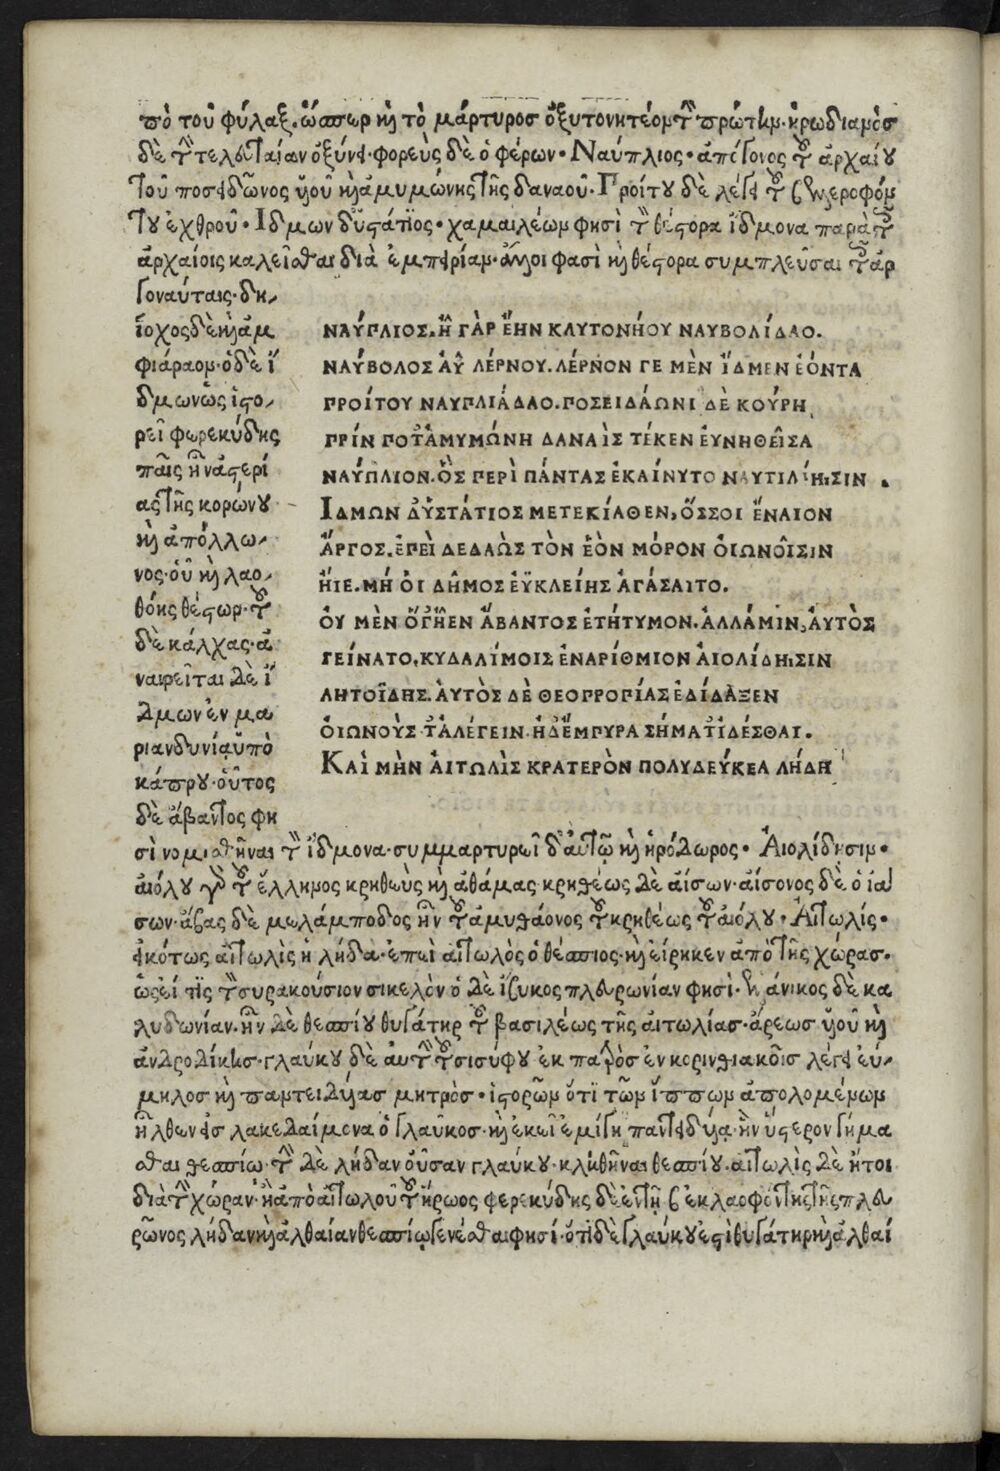 πὸ τοῦ φύλαξ. ὥσπερ καὶ τὸ μάρτυρος ὀξυτονητέον τὴν πρώτην. κρωδιαμὸς
δὲ τὴν τελευταίαν ὀξύνει. φορεὺς δὲ ὁ φέρων. Ναύπλιος. ἀπόγονος τοῦ ἀρχαίου
τοῦ ποσειδῶνος υἱοῦ καὶ ἀμυμώνης τῆς δαναοῦ. Προίτου δὲ λέγει τοῦ βελλεροφόν
του ἐχθροῦ. Ιδμων δ' ὑστάτιος. χαμαιλέων φησὶ τὸν θέστορα ἴδμονα παρὰ τοῖς
ἀρχαίοις καλεῖσθαι διὰ ἐμπειρίαν. ἄλλοι φασὶ καὶ θέστορα συμπλεῦσαι τοῖς ἀρ
γοναύταις. δη,
ίοχος δὲ καὶ ἀμ
φιάραον. ὁ δὲ ἴ
δμων ὡς ἱστο,
ρεῖ φερεκύδης
παῖς ἦν ἀστερί
ας τῆς κορώνου
καὶ ἀπόλλω,
νος. οὗ καὶ λαο,
θόης θέστωρ. τοῦ
δὲ κάλχας. ἀ
ναιρεῖται δὲ ἴ
δμων ἐν μα
ριανδυνίᾳ ὑπὸ
κάπρου. οὗτος
δὲ ἄβαντος φη
ΝΑΎΠΛΙΟΣ. Ἦ ΓᾺΡ ἜΗΝ ΚΛΥΤΟΝΉΟΥ ΝΑΥΒΟΛΊΔΑΟ.
ΝΑΎΒΟΛΟΣ ΑΥ̓͂ ΛΈΡΝΟΥ. ΛΈΡΝΟΝ ΓΕ ΜῈΝ ἼΔΜΕΝ ἘΌΝΤΑ
ΠΡΟΊΤΟΥ ΝΑΥΠΛΙΆΔΑΟ. ΠΟΣΕΙΔΆΩΝΙ ΔῈ ΚΟΎΡΗ
ΠΡΊΝ ΠΟΤ' ἈΜΥΜΏΝΗ ΔΑΝΑῚΣ ΤΈΚΕΝ ἘΥΝΗΘΕΙ͂ΣΑ
ΝΑΎΠΛΙΟΝ. ὋΣ ΠΕΡῚ ΠΆΝΤΑΣ ἘΚΑΊΝΥΤΟ ΝΑΥΤΙΛΊΗΙΣΙΝ.
ἸΔΜΩΝ Δ' ὙΣΤΆΤΙΟΣ ΜΕΤΕΚΊΑΘΕΝ, ὍΣΣΟΙ ἜΝΑΙΟΝ
ἌΡΓΟΣ. ἘΠΕῚ ΔΕΔΑῺΣ ΤῸΝ ἙῸΝ ΜΌΡΟΝ ὈΙΩΝΟΙ͂ΣΙΝ
ἬΙΕ. ΜΉ ὉΙ ΔΗ͂ΜΟΣ ἘΫΚΛΕΊΗΣ ἈΓΆΣΑΙΤΟ.
ὈΥ ΜῈΝ ὍΓ' ἮΕΝ ἌΒΑΝΤΟΣ ἘΤΉΤΥΜΟΝ. ἈΛΛΆΜΙΝ, ἈΥΤῸΣ
ΓΕΊΝΑΤΟ, ΚΥΔΑΛΊΜΟΙΣ ἘΝΑΡΊΘΜΙΟΝ ἈΙΟΛΊΔΗΙΣΙΝ
ΛΗΤΟΪΔΗΣ. ἈΥΤῸΣ ΔῈ ΘΕΟΠΡΟΠΊΑΣ ἘΔΊΔΑΞΕΝ
ὈΙΩΝΟΎΣ Τ' ἈΛΈΓΕΙΝ. ἨΔ' ἜΜΠΥΡΑ ΣΉΜΑΤ' ἸΔΈΣΘΑΙ.
ΚΑῚ ΜῊΝ ἈΙΤΩΛῚΣ ΚΡΑΤΕΡῸΝ ΠΟΛΥΔΕΎΚΕΑ ΛΉΔΗ
σὶ νομισθῆναι τὸν ἴδμονα. συμμαρτυρεῖ δ' αὐτῷ καὶ ἡρόδωρος. Αἰολίδησιν.
αἰόλου γὰρ τοῦ ἕλληνος κρηθεὺς καὶ ἀθάμας κρηθέως δὲ αἴσων. αἴσονος δὲ ὁ ἰά
σων. ἄβας δὲ μελάμποδος ἦν τοῦ ἀμυθάονος τοῦ κρηθέως τοῦ αἰόλου. Αἰτωλίς.
εἰκότως αἰτωλὶς ἡ λήδα. ἐπεὶ αἰτωλὸς ὁ θέσπιος. καὶ εἴρηκεν ἀπὸ τῆς χώρας.
ὡς εἴ τις τὸν συρακούσιον σικελὸν ὁ δὲ ἴβυκος πλευρωνίαν φησὶ. ἑλλάνικος δὲ κα
λυδωνίαν. ἦν δὲ θεσπίου θυγάτηρ τοῦ βασιλέως τῆς αἰτωλίας. ἄρεως υἱοῦ καὶ
ἀνδροδίκης. γλαύκου δὲ αὐτὴν τοῦ σισύφου ἐκ πατρὸς ἐν κορινθιακοῖς λέγει εὔ,
μηλος καὶ παντειδυίας μητρὸς. ἱστορῶν ὅτι τῶν ἵππων ἀπολομένων
ἦλθεν εἰς λακεδαίμονα ὁ γλαῦκος. καὶ ἐκεῖ ἐμίγη παντειδυίᾳ. ἣν ὕστερον γήμα
σθαι θεσπίῳ. τὴν δὲ λήδαν οὖσαν γλαύκου. κληθῆναι θεσπίου. αἰτωλὶς δὲ ἤτοι
διὰ τὴν χώραν. ἢ ἀπὸ αἰτωλοῦ τοῦ ἥρωος φερεκύδης δὲ ἐν τῇ β ἐκ λαοφόντης τῆς πλευ
ρῶνος λήδαν καὶ ἀλθαίαν θεσπίῳ γενέσθαι φησί. ὅτι δὲ γλαύκου ἐστὶ θυγάτηρ καὶ ἀλθαί